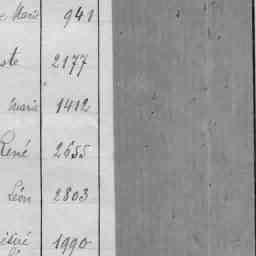 Marie 941
ste 2177
Marie 1412
René 2655
Léon 2803
1990